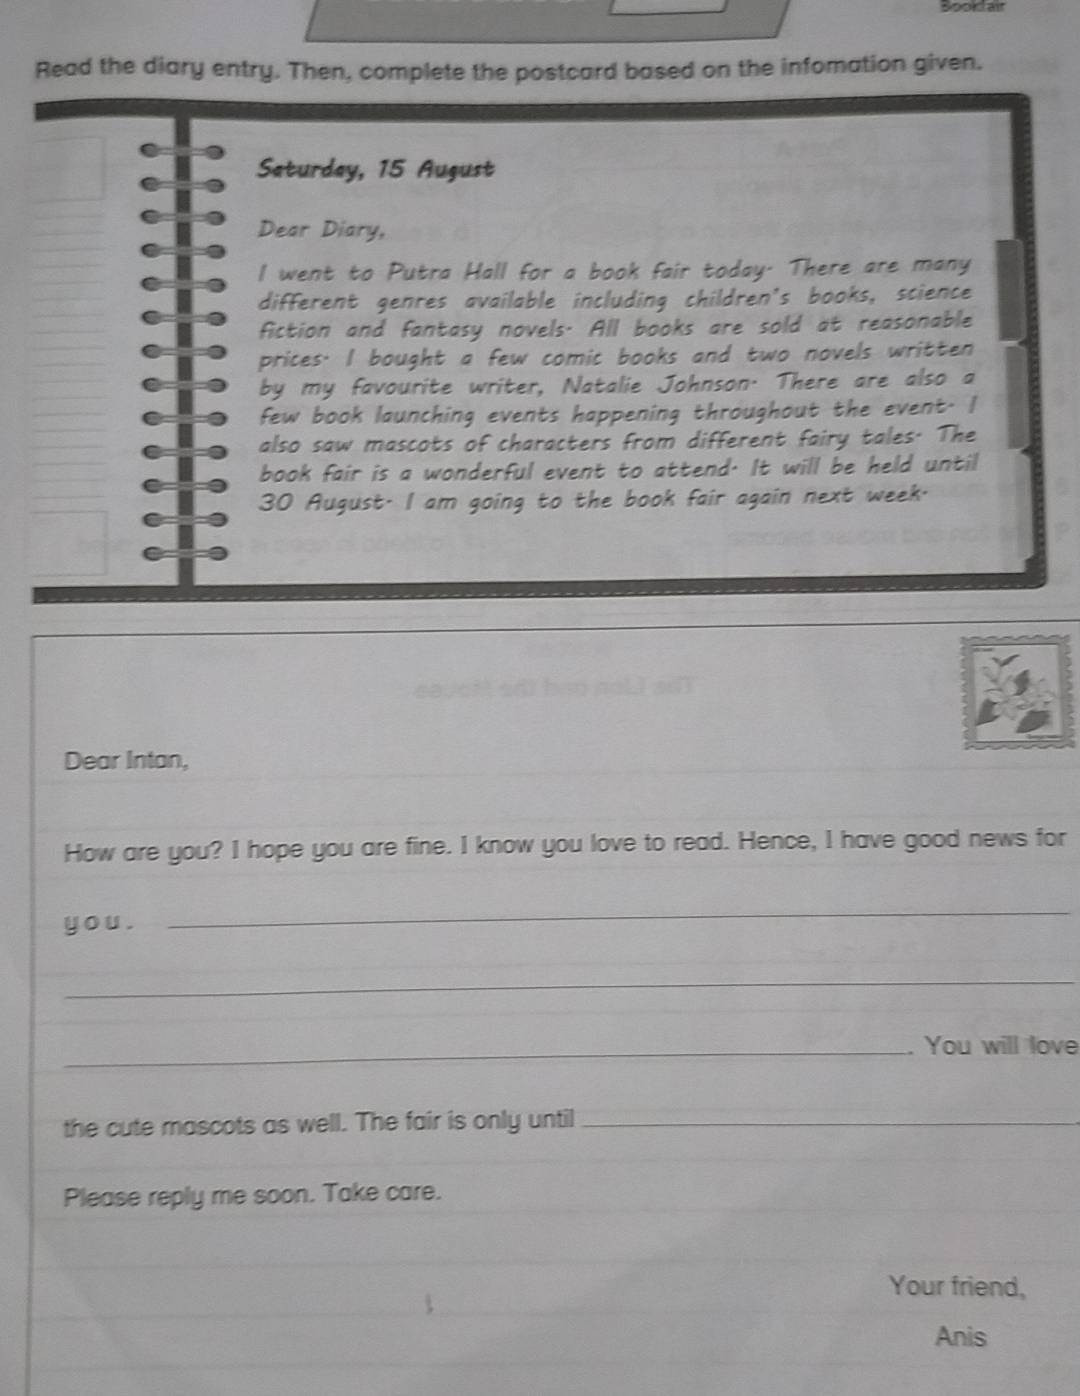 Bookfair
Read the diary entry. Then, complete the postcard based on the infomation given.
Saturday, 15 August
Dear Diary,
I went to Putra Hall for a book fair today. There are many
different genres available including children's books, science
fiction and fantasy novels. All books are sold at reasonable
prices. I bought a few comic books and two novels written
by my favourite writer, Natalie Johnson. There are also a
few book launching events happening throughout the event. I
also saw mascots of characters from different fairy tales. The
book fair is a wonderful event to attend. It will be held until
30 August. I am going to the book fair again next week.
Dear Intan,
How are you? I hope you are fine. I know you love to read. Hence, I have good news for
you.
. You will love
the cute mascots as well. The fair is only until
Please reply me soon. Take care.
Your friend,
Anis